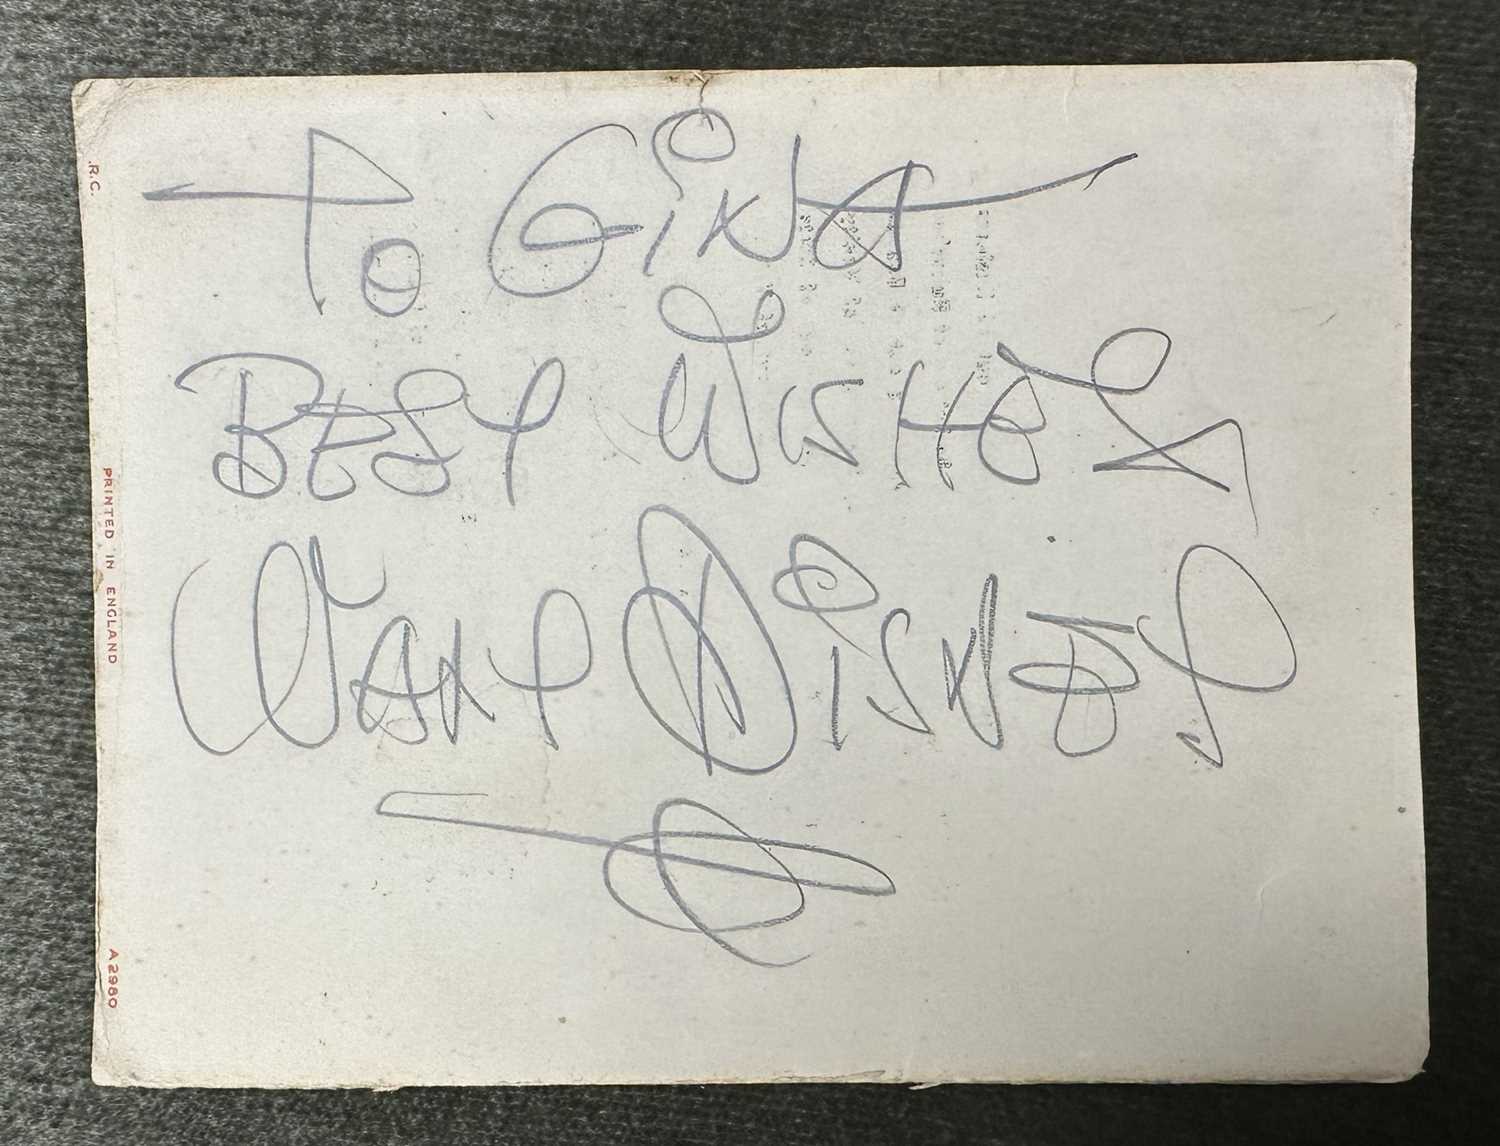 TO GINA
BEST WISHES
WALT DISNEY
.R.C.
PRINTED IN ENGLAND
A2980